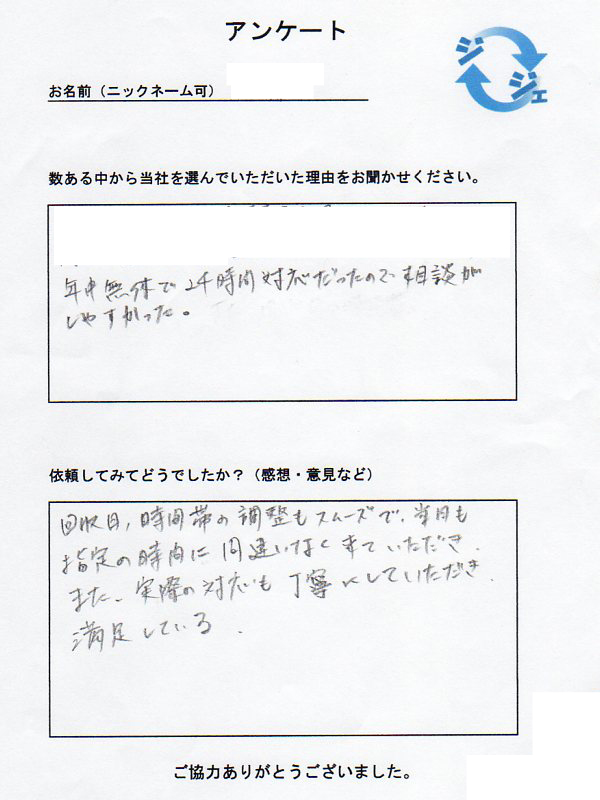 アンケート
ジジェ
お名前（ニックネーム可）
数ある中から当社を選んでいただいた理由をお聞かせください。
年中無休で24時間対応だったので相談が
しやすかった。
依頼してみてどうでしたか？（感想・意見など）
回収日、時間帯の調整もスムーズで、当日も
指定の時間に間違いなく来ていただき、
また、実際の対応も丁寧にしていただき、
満足している。
ご協力ありがとうございました。